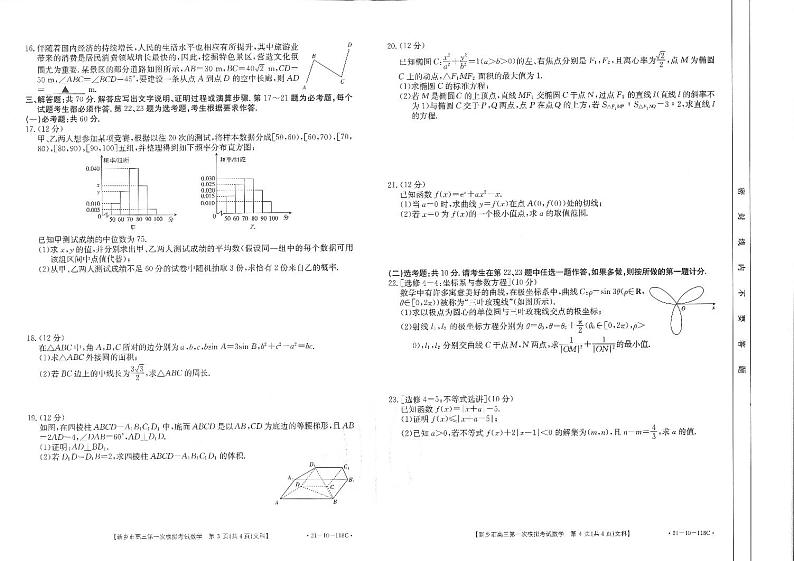 16. 伴随着国内经济的持续增长,人民的生活水平也相应有所提升,其中旅游业
带来的消费是居民消费领域增长最快的,因此,挖掘特色景区,营造文化氛
围尤为重要.某景区的部分道路如图所示,AB=30 m,BC=40√2 m,CD=
50 m,∠ABC=∠BCD=45°,要建设一条从点 A 到点 D 的空中长廊,则 AD
= ▲ m.
A
B
C
D
三、解答题:共 70 分.解答应写出文字说明、证明过程或演算步骤.第 17~21 题为必考题,每个
试题考生都必须作答.第 22、23 题为选考题,考生根据要求作答.
(一)必考题:共 60 分.
17.(12 分)
甲、乙两人想参加某项竞赛,根据以往 20 次的测试,将样本数据分成[50,60),[60,70),[70,
80),[80,90),[90,100]五组,并整理得到如下频率分布直方图:
频率/组距
0.040
x
y
0.010
0.005
50 60 70 80 90 100 分
甲
频率/组距
0.030
0.025
0.020
0.015
0.010
50 60 70 80 90 100 分
乙
已知甲测试成绩的中位数为 75.
(1)求 x,y 的值,并分别求出甲、乙两人测试成绩的平均数(假设同一组中的每个数据可用
该组区间中点值代替);
(2)从甲、乙两人测试成绩不足 60 分的试卷中随机抽取 3 份,求恰有 2 份来自乙的概率.
18.(12 分)
在△ABC 中,角 A,B,C 所对的边分别为 a,b,c,bsin A=3sin B,b²+c²-a²=bc.
(1)求△ABC 外接圆的面积;
(2)若 BC 边上的中线长为 3√3/2,求△ABC 的周长.
19.(12 分)
如图,在四棱柱 ABCD-A₁B₁C₁D₁ 中,底面 ABCD 是以 AB,CD 为底边的等腰梯形,且 AB
=2AD=4,∠DAB=60°,AD⊥D₁D.
(1)证明:AD⊥BD₁.
(2)若 D₁D=D₁B=2,求四棱柱 ABCD-A₁B₁C₁D₁ 的体积.
D₁
C₁
A₁
B₁
D
C
A
B
【新乡市高三第一次模拟考试数学 第 3 页(共 4 页)文科】
·21-10-118C·
20.(12 分)
已知椭圆 C:x²/a²+y²/b²=1(a>b>0)的左、右焦点分别是 F₁,F₂,且离心率为√2/2,点 M 为椭圆
C 上的动点,△F₁MF₂ 面积的最大值为 1.
(1)求椭圆 C 的标准方程;
(2)若 M 是椭圆 C 的上顶点,直线 MF₁ 交椭圆 C 于点 N,过点 F₁ 的直线 l(直线 l 的斜率不
为 1)与椭圆 C 交于 P,Q 两点,点 P 在点 Q 的上方,若 S△F₁MP:S△F₁NQ=3:2,求直线 l
的方程.
21.(12 分)
已知函数 f(x)=eˣ+ax²-x.
(1)当 a=0 时,求曲线 y=f(x)在点 A(0,f(0))处的切线;
(2)若 x=0 为 f(x)的一个极小值点,求 a 的取值范围.
(二)选考题:共 10 分.请考生在第 22、23 题中任选一题作答,如果多做,则按所做的第一题计分.
22.[选修 4-4:坐标系与参数方程](10 分)
数学中有许多寓意美好的曲线,在极坐标系中,曲线 C:ρ=sin 3θ(ρ∈R,
θ∈[0,2π))被称为“三叶玫瑰线”(如图所示).
(1)求以极点为圆心的单位圆与三叶玫瑰线交点的极坐标;
(2)射线 l₁,l₂ 的极坐标方程分别为 θ=θ₀,θ=θ₀+π/2(θ₀∈[0,2π),ρ>
0),l₁,l₂ 分别交曲线 C 于点 M,N 两点,求1/|OM|²+1/|ON|²的最小值.
O
x
23.[选修 4-5:不等式选讲](10 分)
已知函数 f(x)=|x+a|-5.
(1)证明:f(x)≤|x-a-5|;
(2)已知 a>0,若不等式 f(x)+2|x-1|<0 的解集为(m,n),且 n-m=4/3,求 a 的值.
【新乡市高三第一次模拟考试数学 第 4 页(共 4 页)文科】
·21-10-118C·
密
封
线
内
不
要
答
题